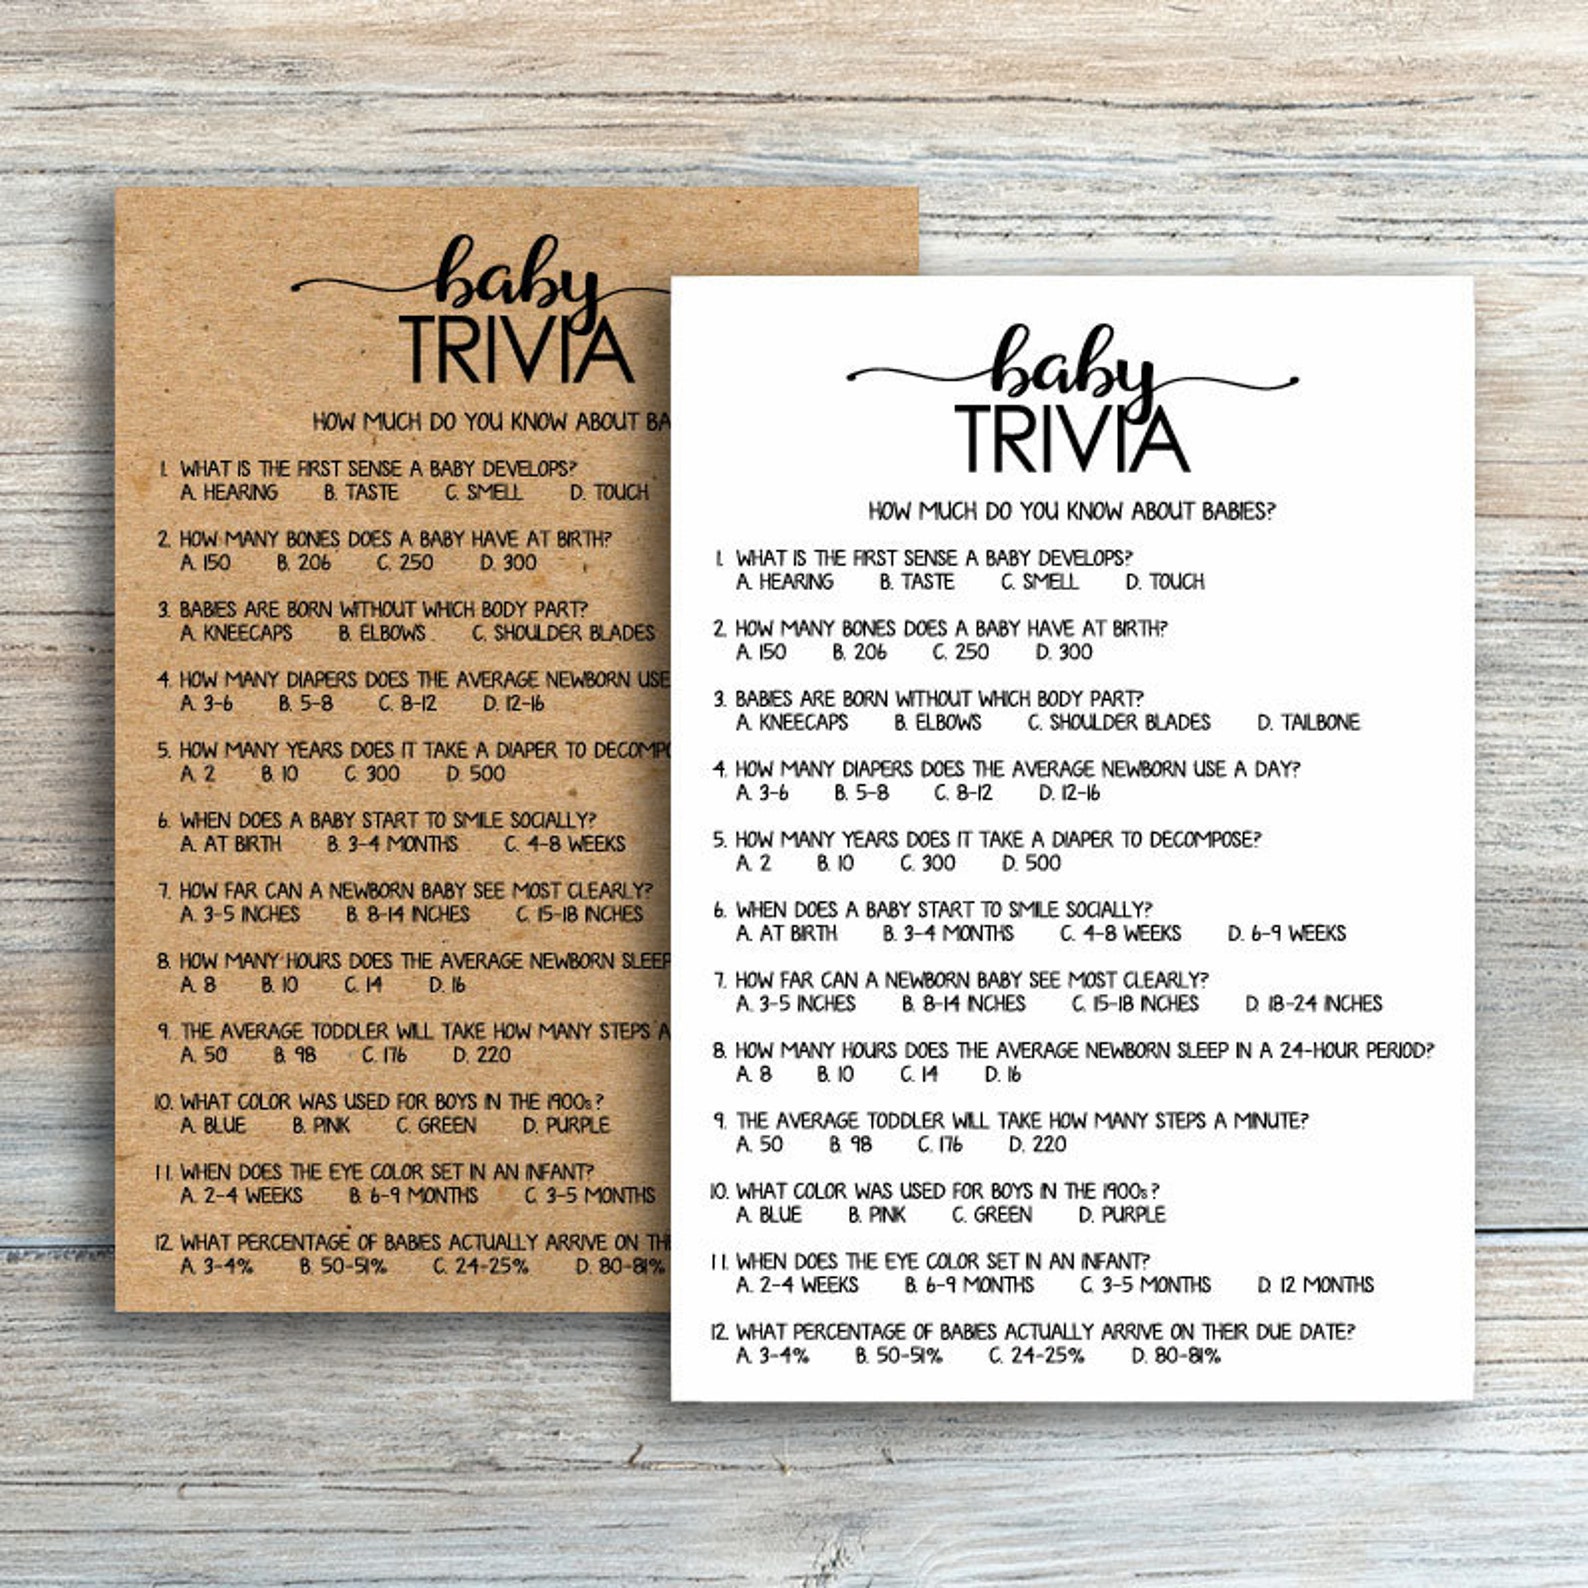 baby
TRIVIA
HOW MUCH DO YOU KNOW ABOUT BA
1. WHAT IS THE FIRST SENSE A BABY DEVELOPS?
A. HEARING B. TASTE C. SMELL D. TOUCH
2. HOW MANY BONES DOES A BABY HAVE AT BIRTH?
A. 150 B. 206 C. 250 D. 300
3. BABIES ARE BORN WITHOUT WHICH BODY PART?
A. KNEECAPS B. ELBOWS C. SHOULDER BLADES
4. HOW MANY DIAPERS DOES THE AVERAGE NEWBORN USE
A. 3-6 B. 5-8 C. 8-12 D. 12-16
5. HOW MANY YEARS DOES IT TAKE A DIAPER TO DECOMPO
A. 2 B. 10 C. 300 D. 500
6. WHEN DOES A BABY START TO SMILE SOCIALLY?
A. AT BIRTH B. 3-4 MONTHS C. 4-8 WEEKS
7. HOW FAR CAN A NEWBORN BABY SEE MOST CLEARLY?
A. 3-5 INCHES B. 8-14 INCHES C. 15-18 INCHES
8. HOW MANY HOURS DOES THE AVERAGE NEWBORN SLEEP
A. 8 B. 10 C. 14 D. 16
9. THE AVERAGE TODDLER WILL TAKE HOW MANY STEPS A
A. 50 B. 98 C. 176 D. 220
10. WHAT COLOR WAS USED FOR BOYS IN THE 1900s?
A. BLUE B. PINK C. GREEN D. PURPLE
11. WHEN DOES THE EYE COLOR SET IN AN INFANT?
A. 2-4 WEEKS B. 6-9 MONTHS C. 3-5 MONTHS
12. WHAT PERCENTAGE OF BABIES ACTUALLY ARRIVE ON TH
A. 3-4% B. 50-51% C. 24-25% D. 80-81%
baby
TRIVIA
HOW MUCH DO YOU KNOW ABOUT BABIES?
1. WHAT IS THE FIRST SENSE A BABY DEVELOPS?
A. HEARING B. TASTE C. SMELL D. TOUCH
2. HOW MANY BONES DOES A BABY HAVE AT BIRTH?
A. 150 B. 206 C. 250 D. 300
3. BABIES ARE BORN WITHOUT WHICH BODY PART?
A. KNEECAPS B. ELBOWS C. SHOULDER BLADES D. TAILBONE
4. HOW MANY DIAPERS DOES THE AVERAGE NEWBORN USE A DAY?
A. 3-6 B. 5-8 C. 8-12 D. 12-16
5. HOW MANY YEARS DOES IT TAKE A DIAPER TO DECOMPOSE?
A. 2 B. 10 C. 300 D. 500
6. WHEN DOES A BABY START TO SMILE SOCIALLY?
A. AT BIRTH B. 3-4 MONTHS C. 4-8 WEEKS D. 6-9 WEEKS
7. HOW FAR CAN A NEWBORN BABY SEE MOST CLEARLY?
A. 3-5 INCHES B. 8-14 INCHES C. 15-18 INCHES D. 18-24 INCHES
8. HOW MANY HOURS DOES THE AVERAGE NEWBORN SLEEP IN A 24-HOUR PERIOD?
A. 8 B. 10 C. 14 D. 16
9. THE AVERAGE TODDLER WILL TAKE HOW MANY STEPS A MINUTE?
A. 50 B. 98 C. 176 D. 220
10. WHAT COLOR WAS USED FOR BOYS IN THE 1900s?
A. BLUE B. PINK C. GREEN D. PURPLE
11. WHEN DOES THE EYE COLOR SET IN AN INFANT?
A. 2-4 WEEKS B. 6-9 MONTHS C. 3-5 MONTHS D. 12 MONTHS
12. WHAT PERCENTAGE OF BABIES ACTUALLY ARRIVE ON THEIR DUE DATE?
A. 3-4% B. 50-51% C. 24-25% D. 80-81%